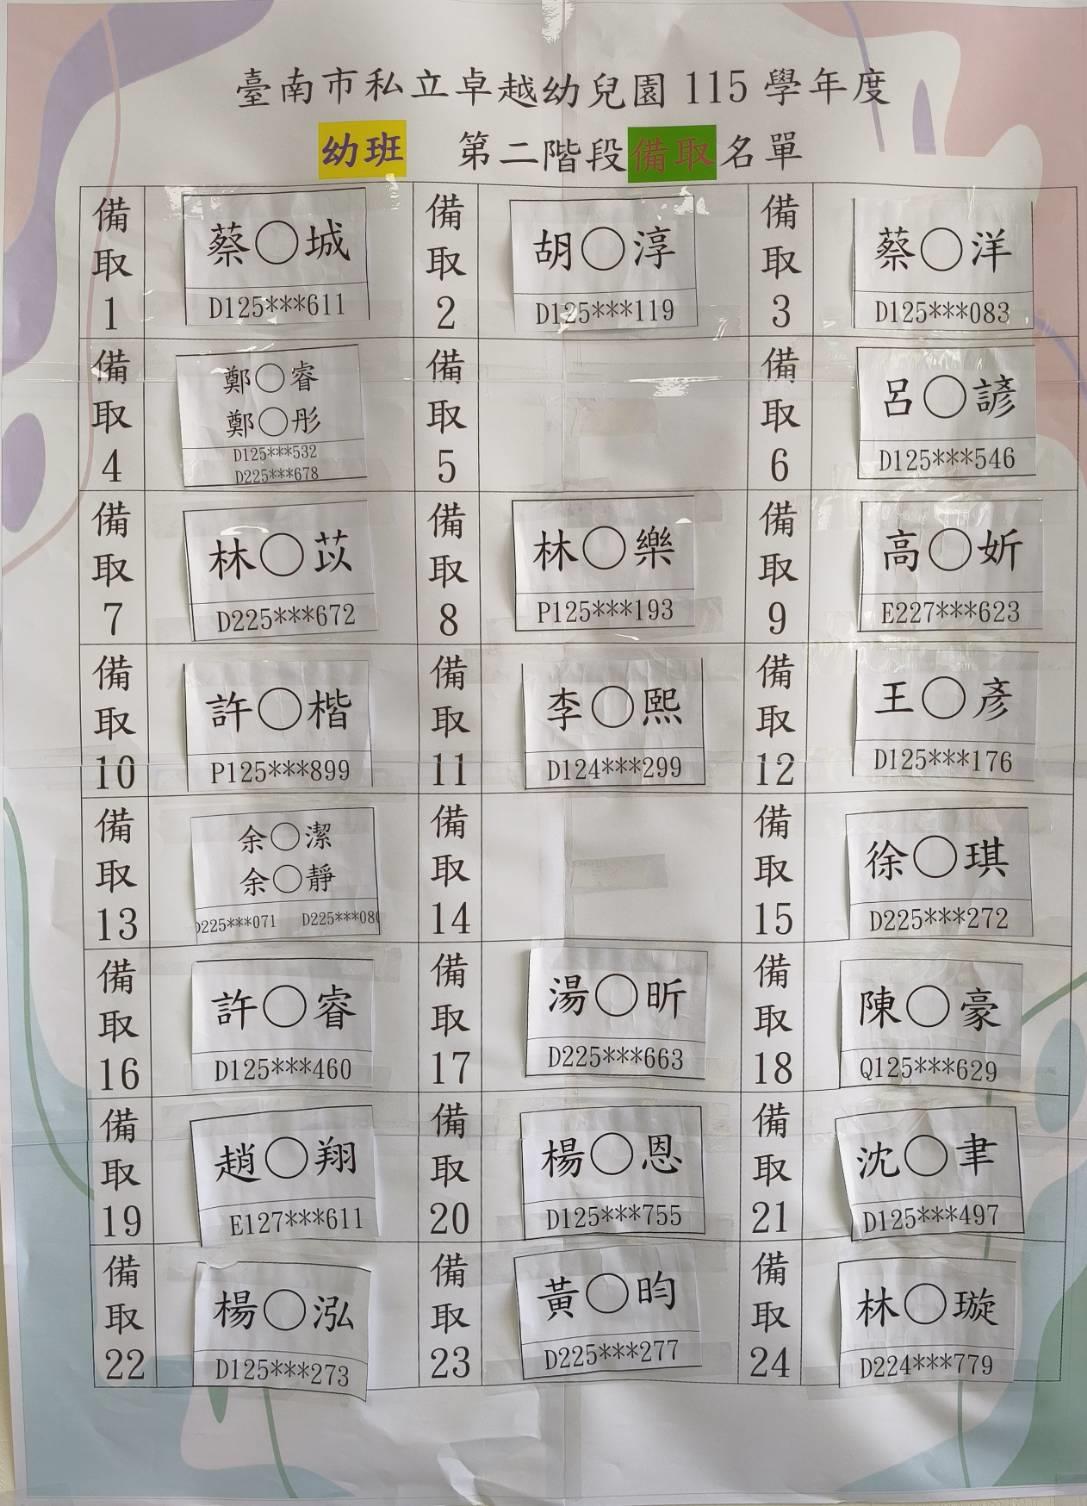 臺南市私立卓越幼兒園 115 學年度
幼班 第二階段備取名單
備取1 蔡〇城 D125***611
備取2 胡〇淳 D125***119
備取3 蔡〇洋 D125***083
備取4 鄭〇睿 鄭〇彤 D125***532 D225***678
備取5
備取6 呂〇諺 D125***546
備取7 林〇苡 D225***672
備取8 林〇樂 P125***193
備取9 高〇妡 E227***623
備取10 許〇楷 P125***899
備取11 李〇熙 D124***299
備取12 王〇彥 D125***176
備取13 余〇潔 余〇靜 D225***071 D225***080
備取14
備取15 徐〇琪 D225***272
備取16 許〇睿 D125***460
備取17 湯〇昕 D225***663
備取18 陳〇豪 Q125***629
備取19 趙〇翔 E127***611
備取20 楊〇恩 D125***755
備取21 沈〇聿 D125***497
備取22 楊〇泓 D125***273
備取23 黃〇昀 D225***277
備取24 林〇璇 D224***779